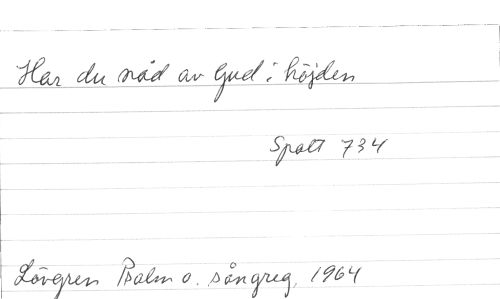 Har du nåd av Gud i höjden
Spalt 734
Lövgren Psalm o. sångreg, 1964